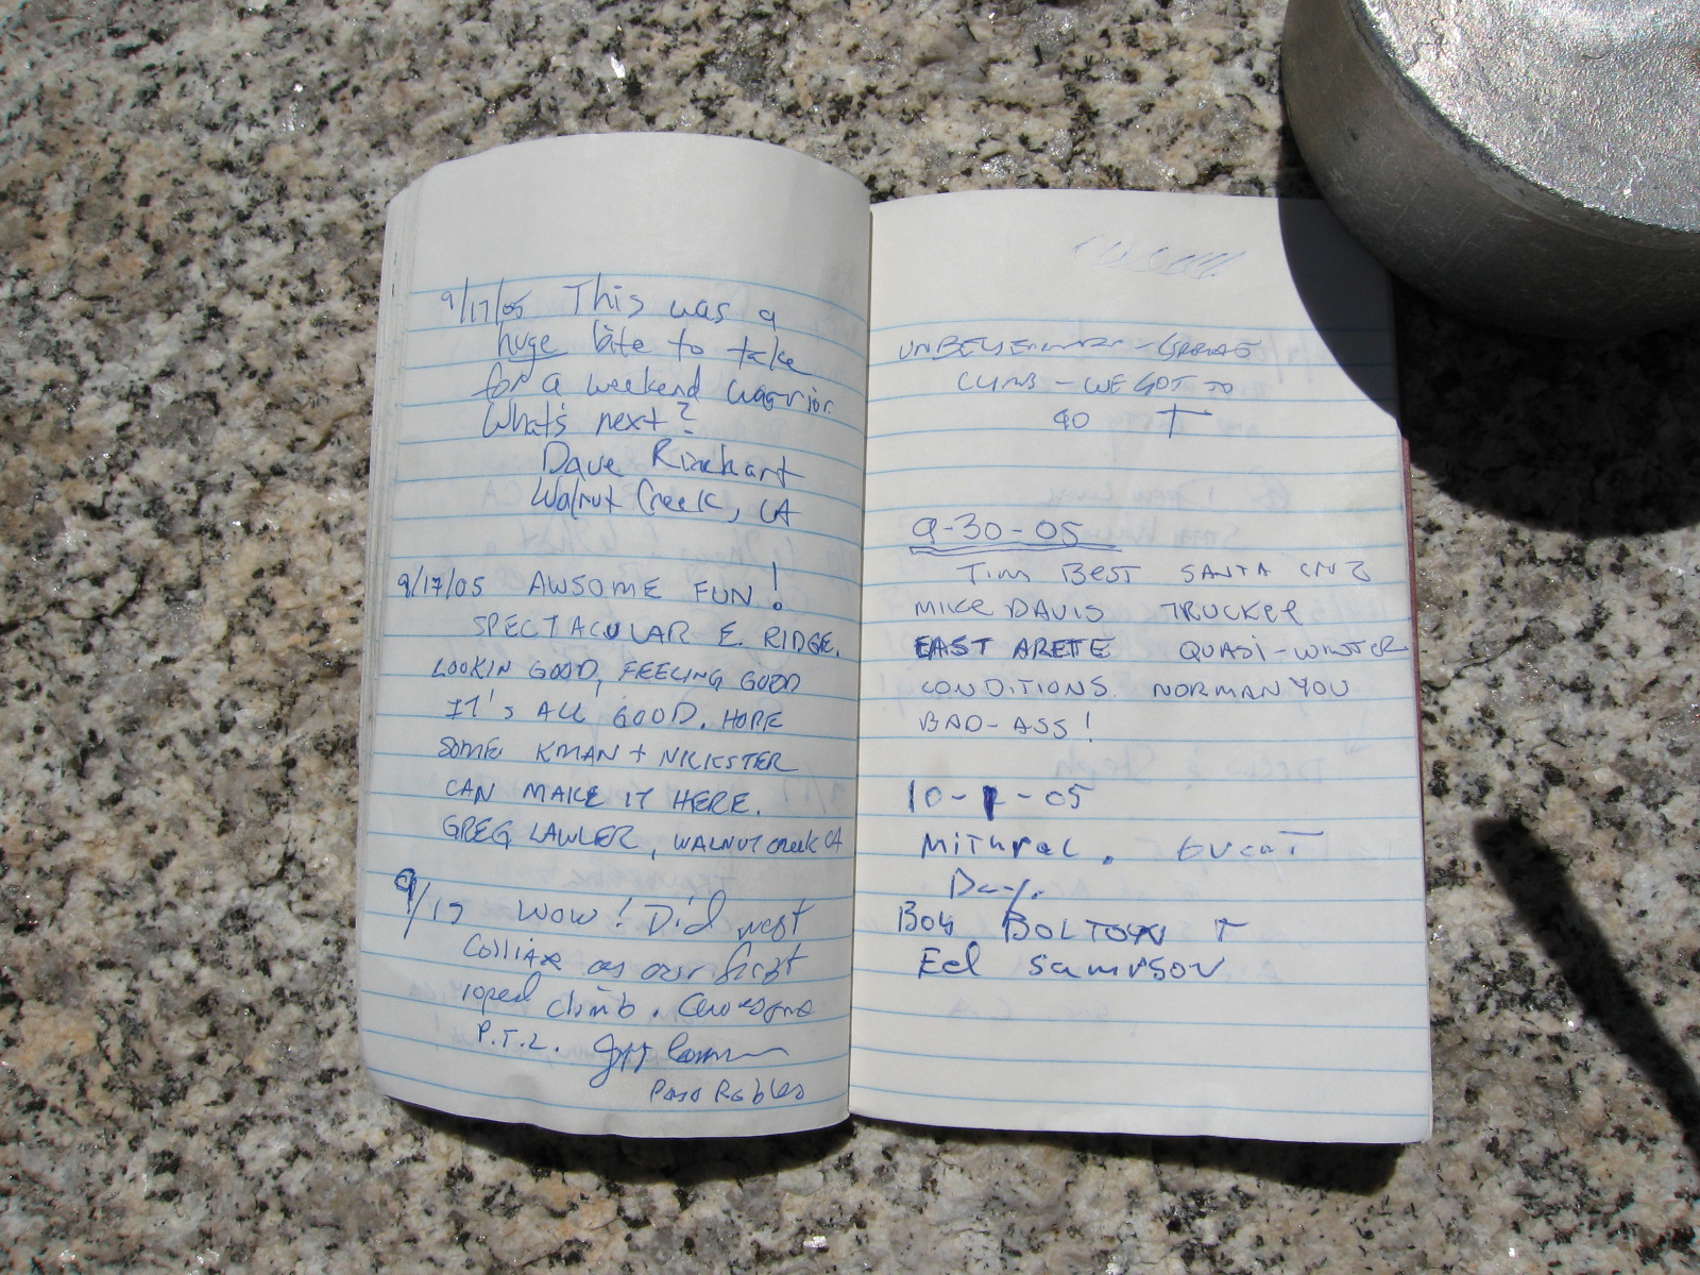 9/17/05 This was a
huge bite to take
for a weekend warrior.
What's next?
Dave Rinehart
Walnut Creek, CA
9/17/05 AWSOME FUN!
SPECTACULAR E. RIDGE.
LOOKIN GOOD, FEELING GOOD
IT'S ALL GOOD. HOPE
SOME KMAN + NICKSTER
CAN MAKE IT HERE.
GREG LAWLER, WALNUT Creek CA
9/17 WOW! Did west
as our first
roped climb.
P.T.L.
Paso Robles
CLIMB - WE GOT TO
GO
9-30-05
Tim BEST SANTA CRUZ
MIKE DAVIS TRUCKEE
EAST ARETE QUASI-WINTER
CONDITIONS. NORMAN YOU
BAD-ASS!
10-1-05
Mithral. Great
Day.
Bob BOLTON
Ed Sampson